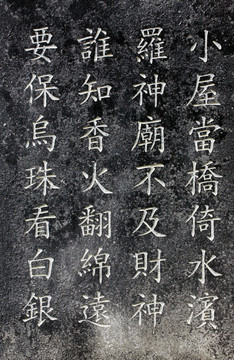 小屋當橋倚水濱
羅神廟不及財神
誰知香火翻綿遠
要保烏珠看白銀